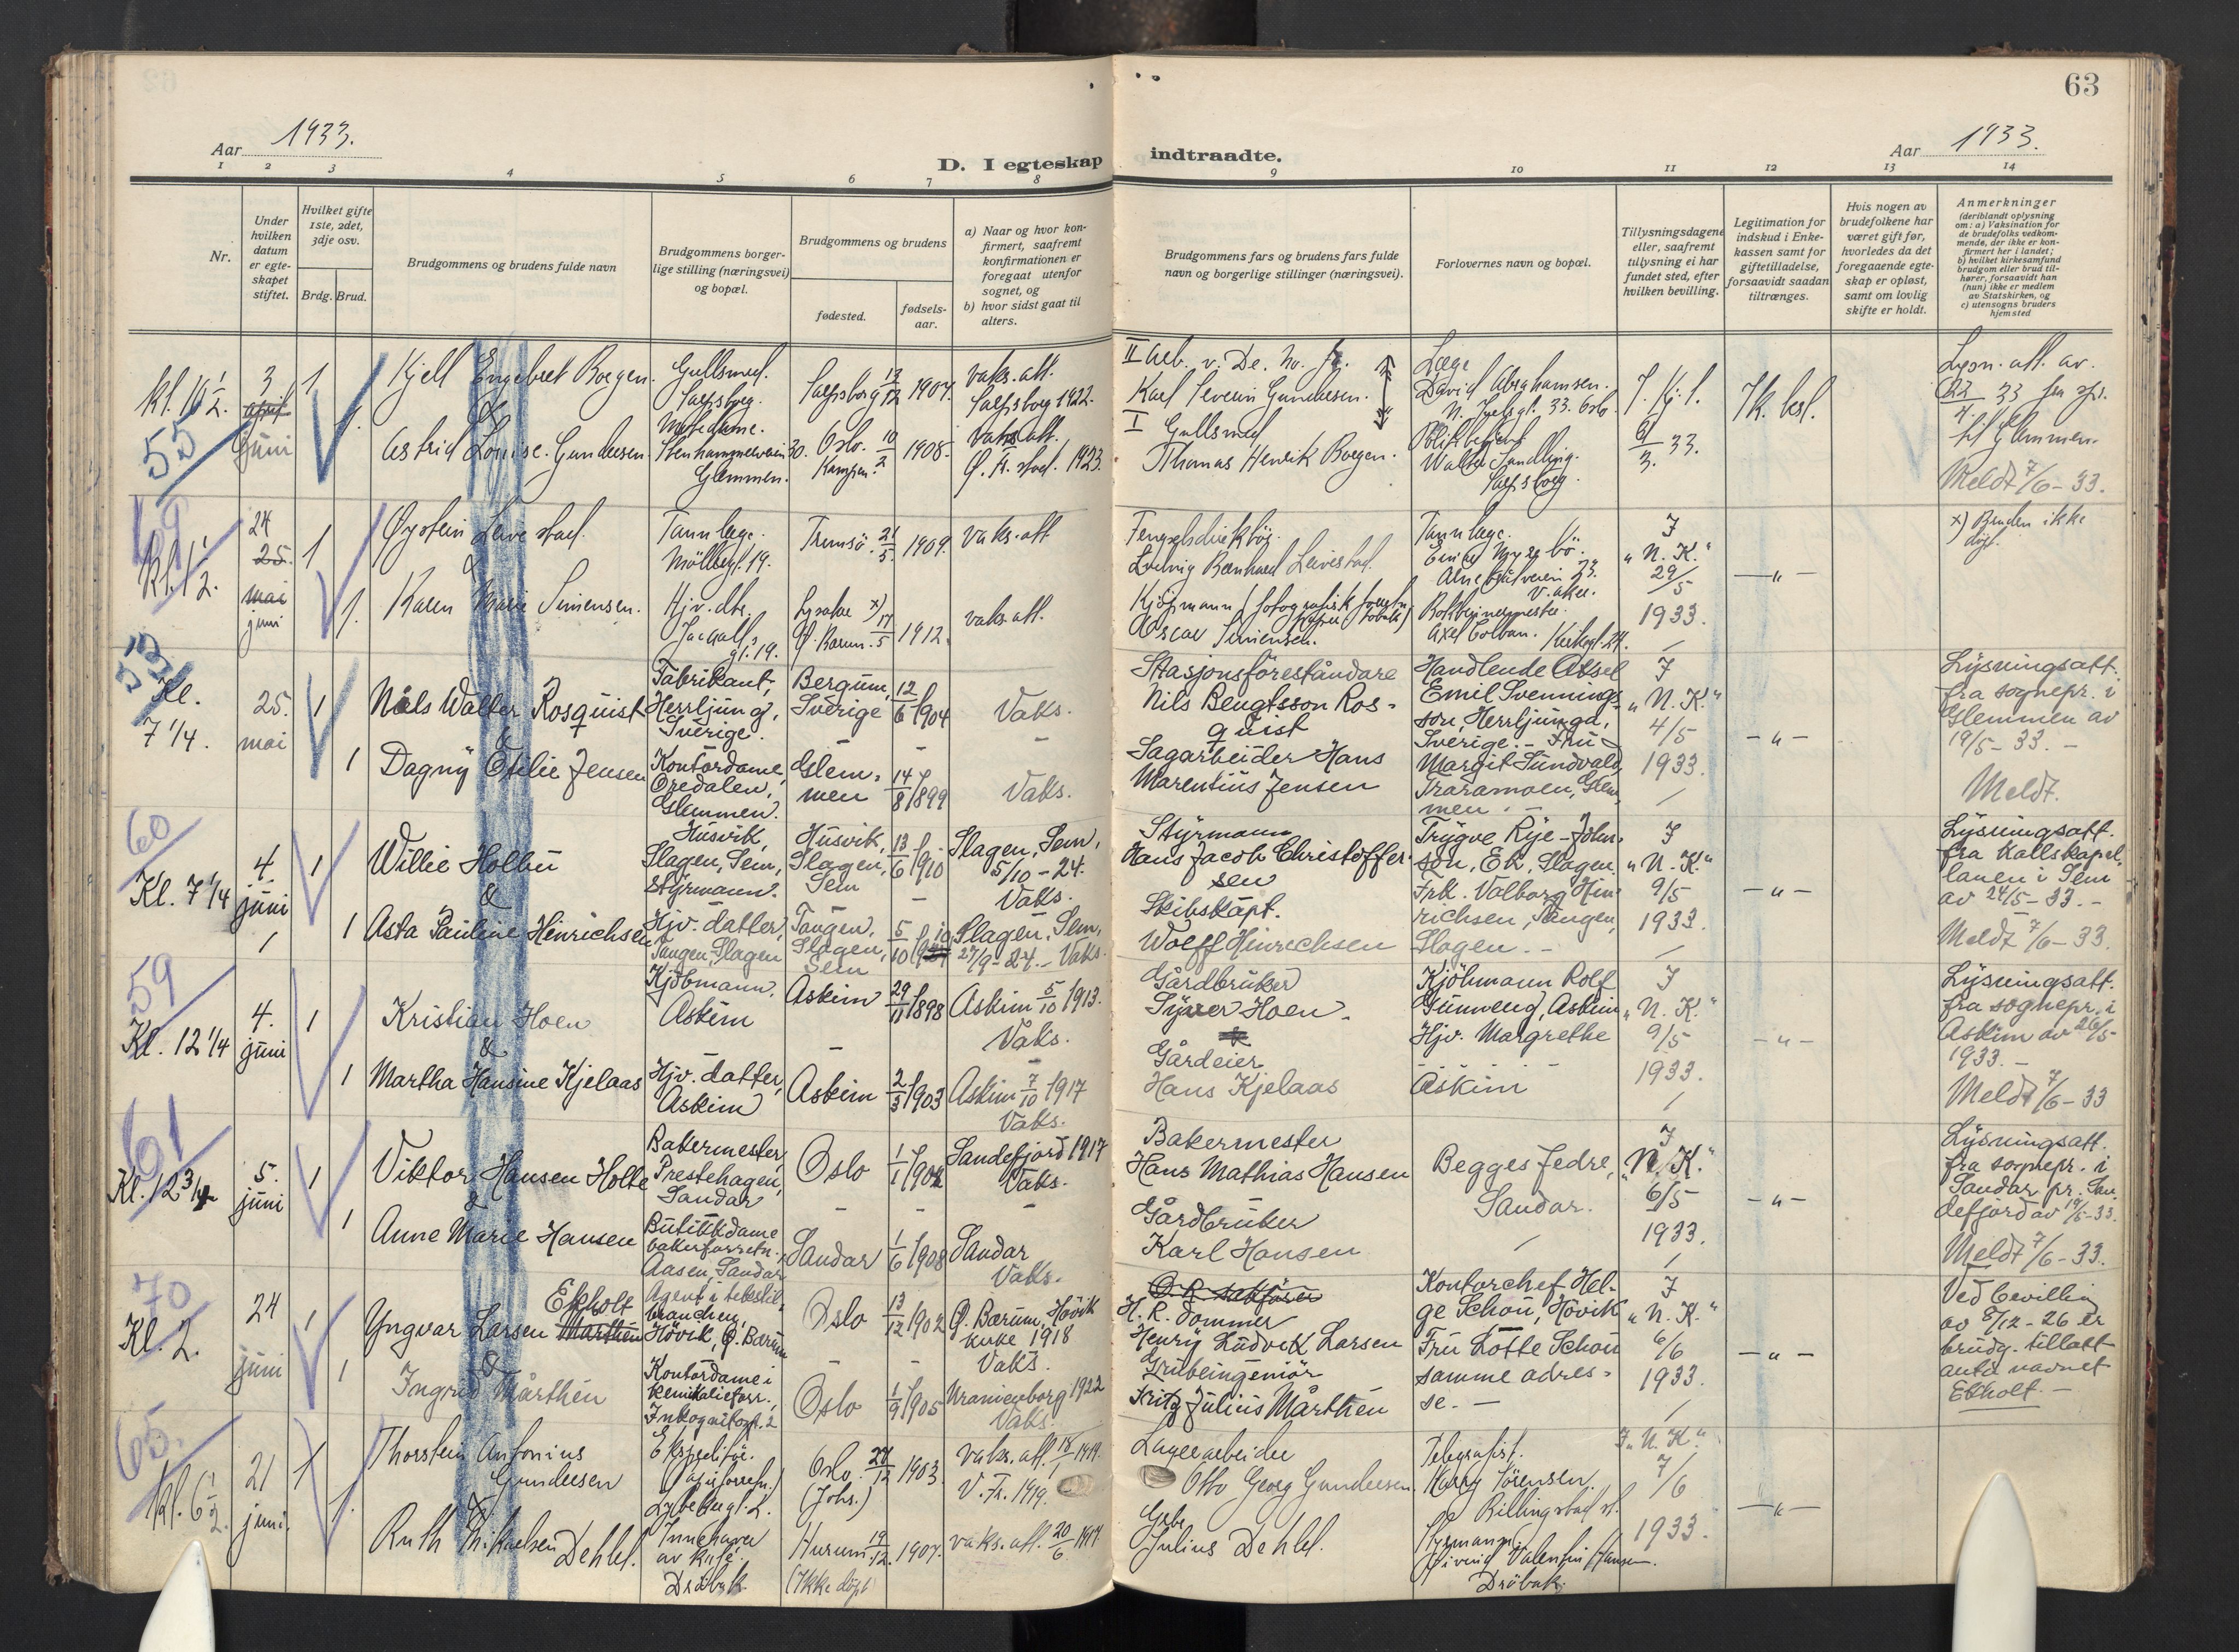 63
Aar 1933.
D. I egteskap indtraadte.
Aar 1933.
1 2 3 4 5 6 7 8 9 10 11 12 13 14
Nr.
Under hvilken datum er egte-skapet stiftet.
Hvilket gifte 1ste, 2det, 3dje osv.
Brdg. Brud.
Brudgommens og brudens fulde navn
Brudgommens borger-lige stilling (næringsvei) og bopæl.
Brudgommens og brudens
fødested.
fødsels-aar.
a) Naar og hvor kon-firmert, saafremt konfirmationen er foregaat utenfor sognet, og
b) hvor sidst gaat til alters.
Brudgommens fars og brudens fars fulde navn og borgerlige stillinger (næringsvei).
Forlovernes navn og bopæl.
Tillysningsdagene eller, saafremt tillysning ei har fundet sted, efter hvilken bevilling.
Legitimation for indskud i Enke-kassen samt for giftetilladelse, forsaavidt saadan tiltrænges.
Hvis nogen av brudefolkene har været gift før, hvorledes da det foregaaende egte-skap er opløst, samt om lovlig skifte er holdt.
Anmerkninger
(deriblandt oplysning om: a) Vaksination for de brudefolks vedkom-mende, der ikke er kon-firmert her i landet;
b) hvilket kirkesamfund brudgom eller brud til-hører, forsaavidt han (hun) ikke er medlem av Statskirken, og
c) utensogns bruders hjemsted
55
3 juni
1
Gullsmed.
Sarpsborg.
Sarpsborg 13/12 1907.
vaks. att.
Sarpsborg 1922.
Karl Severin Gundersen.
Læge
David Abrahamsen.
&
Astrid Louise Gundersen.
Glemmen.
Oslo. 10/2 1908.
Kampen.
vaks att.
1923.
I Gullsmed
Thomas Henrik
Sarpsborg.
til Glemmen.
Meldt 7/6-33.
69
Kl. 1 1/2.
24
25.
mai
juni
1
Øystein Leivestad.
Tannlæge.
Möllergt. 19.
Tromsö. 21/5 1909.
vaks. att
Ludvig Bernhard Leivestad.
Tannlæge.
J
"N. K."
29/5
1933.
—"—
x) Bruden ikke döpt.
&
1.
Karen Marie Simensen.
Hjv. dtr.
gt. 19.
Lysaker x)
17/5 1912.
vaks. att.
Oscar Simensen.
53
Kl.
7 1/4.
25.
mai
1
Nils Walter Rosquist
Fabrikant,
Herrljung,
Sverige.
Bergum,
Sverige
12/6 1904
Vaks.
Stasjonsföreståndare
Nils Bengtsson Ros-
quist
Handlende Absel
Emil Svennings-
son, Herrljunga,
Sverige. - Fru
J
"N. K."
4/5
1933.
—"—
Lysningsatt.
fra sognepr. i
Glemmen av
19/5-33. —
Meldt.
1
Dagny Otilie Jensen
Kontordame,
Oredalen,
Glemmen.
Glem-
men
14/8 1899
Vaks.
Sagarbeider Hans
Marentius Jensen
Margit Sundvald,
Traramoen, Glem-
men. —
60
Kl. 7 1/4
4.
juni
1
Willie Holbu
&
Husvik,
Slagen, Sem,
Styrmann.
Husvik,
Slagen,
Sem
13/6 1910
Slagen, Sem,
5/10 - 24.
Vaks.
Styrmann
Hans Jacob Christoffer-
sen
Trygve Rye-John-
son, Ek, Slagen.
Frk. Valborg Hin-
richsen, Tangen,
Slagen. -
J
"N. K."
9/5
1933.
—"—
Lysningsatt.
fra Kallskapel-
lanen i Sem
av 24/5-33. —
Meldt 7/6-33.
1
Asta Pauline Hinrichsen
Hjv. datter,
Tangen, Slagen
Tangen,
Slagen,
Sem
5/10 1910
Slagen, Sem,
27/9-24. - Vaks.
Skibskapt.
Wolff Hinrichsen
59
Kl. 12 1/4
4.
juni
1
Kristian Hoen
&
Kjöbmann,
Askim
Askim
29/11 1898
Askim 5/10 1913.
Vaks.
Gårdbruker
Syver Hoen.
Kjöbmann Rolf
Gunneng, Askim
Hjv. Margrethe
Askim
J
"N. K."
9/5
1933.
—"—
Lysningsatt.
fra sognepr. i
Askim av 26/5-
1933. —
Meldt 7/6-33
1
Martha Hansine Kjelaas
Hjv. datter,
Askim
Askim
2/3 1903
Askim 7/10 1917
Vaks.
Gårdeier
Hans Kjelaas
61
Kl. 12 3/4
5.
juni
1
Viktor Hansen Holte
&
Bakermester,
Prestehagen,
Sandar
Oslo
1/1 1902
Sandefjord 1917
Vaks.
Bakermester
Hans Mathias Hansen
Begges fedre,
Sandar.
J
"N. K."
6/5
1933.
—"—
Lysningsatt.
fra sognepr. i
Sandar pr. San-
defjord av 19/5-33.
Meldt 7/6-33.
1
Anne Marie Hansen
Butikkdame
bakerforretn.,
Aasen, Sandar
Sandar
1/6 1908
Sandar
Vaks.
Gårdbruker
Karl Hansen
70
Kl. 2.
24
juni
1
Ekholt
Yngvar Larsen Marthéu
&
Agent i tekstil-
branchen,
Hövik, Ø. Bærum
Oslo
13/12 1902
Ø. Bærum, Hövik
kirke 1918
Vaks.
H. R. dommer
Henry Ludvik Larsen
Kontorchef Hel-
ge Schou, Hövik
Fru Lotte Schou
samme adres-
se. —
J
"N. K."
6/6
1933.
—"—
Ved bevilling
av 8/12-26 er
brudg. tillatt
anta navnet
Ekholt. —
1
Ingrid Mårthén
Kontordame i
kemikalieforr.,
Inkognitogt. 2
Oslo
1/9 1905
Uranienborg 1922
Vaks.
Grubeingeniör
Fritz Julius Mårthén
65.
Kl. 6 1/2.
21
juni.
1
Thorstein Antonius
Gundersen
&
Ekspeditör.
Oslo. 28/12 1903.
(Johs.)
vaks. att. 18/1 1919.
V. Fr. 1919.
Lagerarbeider
Otto Georg Gundersen.
Telegrafist.
Harry Sörensen.
Billingstad st.
J. "N. K."
7/6
1933.
—"—
1.
Ruth Mikaelsen Dehlel.
Innehaver
av kafé.
Dröbak
Hurum 19/12. 1907.
(Ikke döpt)
vaks. att. 20/6
Julius Dehlel.
Styrmann.
Valentin Hansen.
Dröbak.